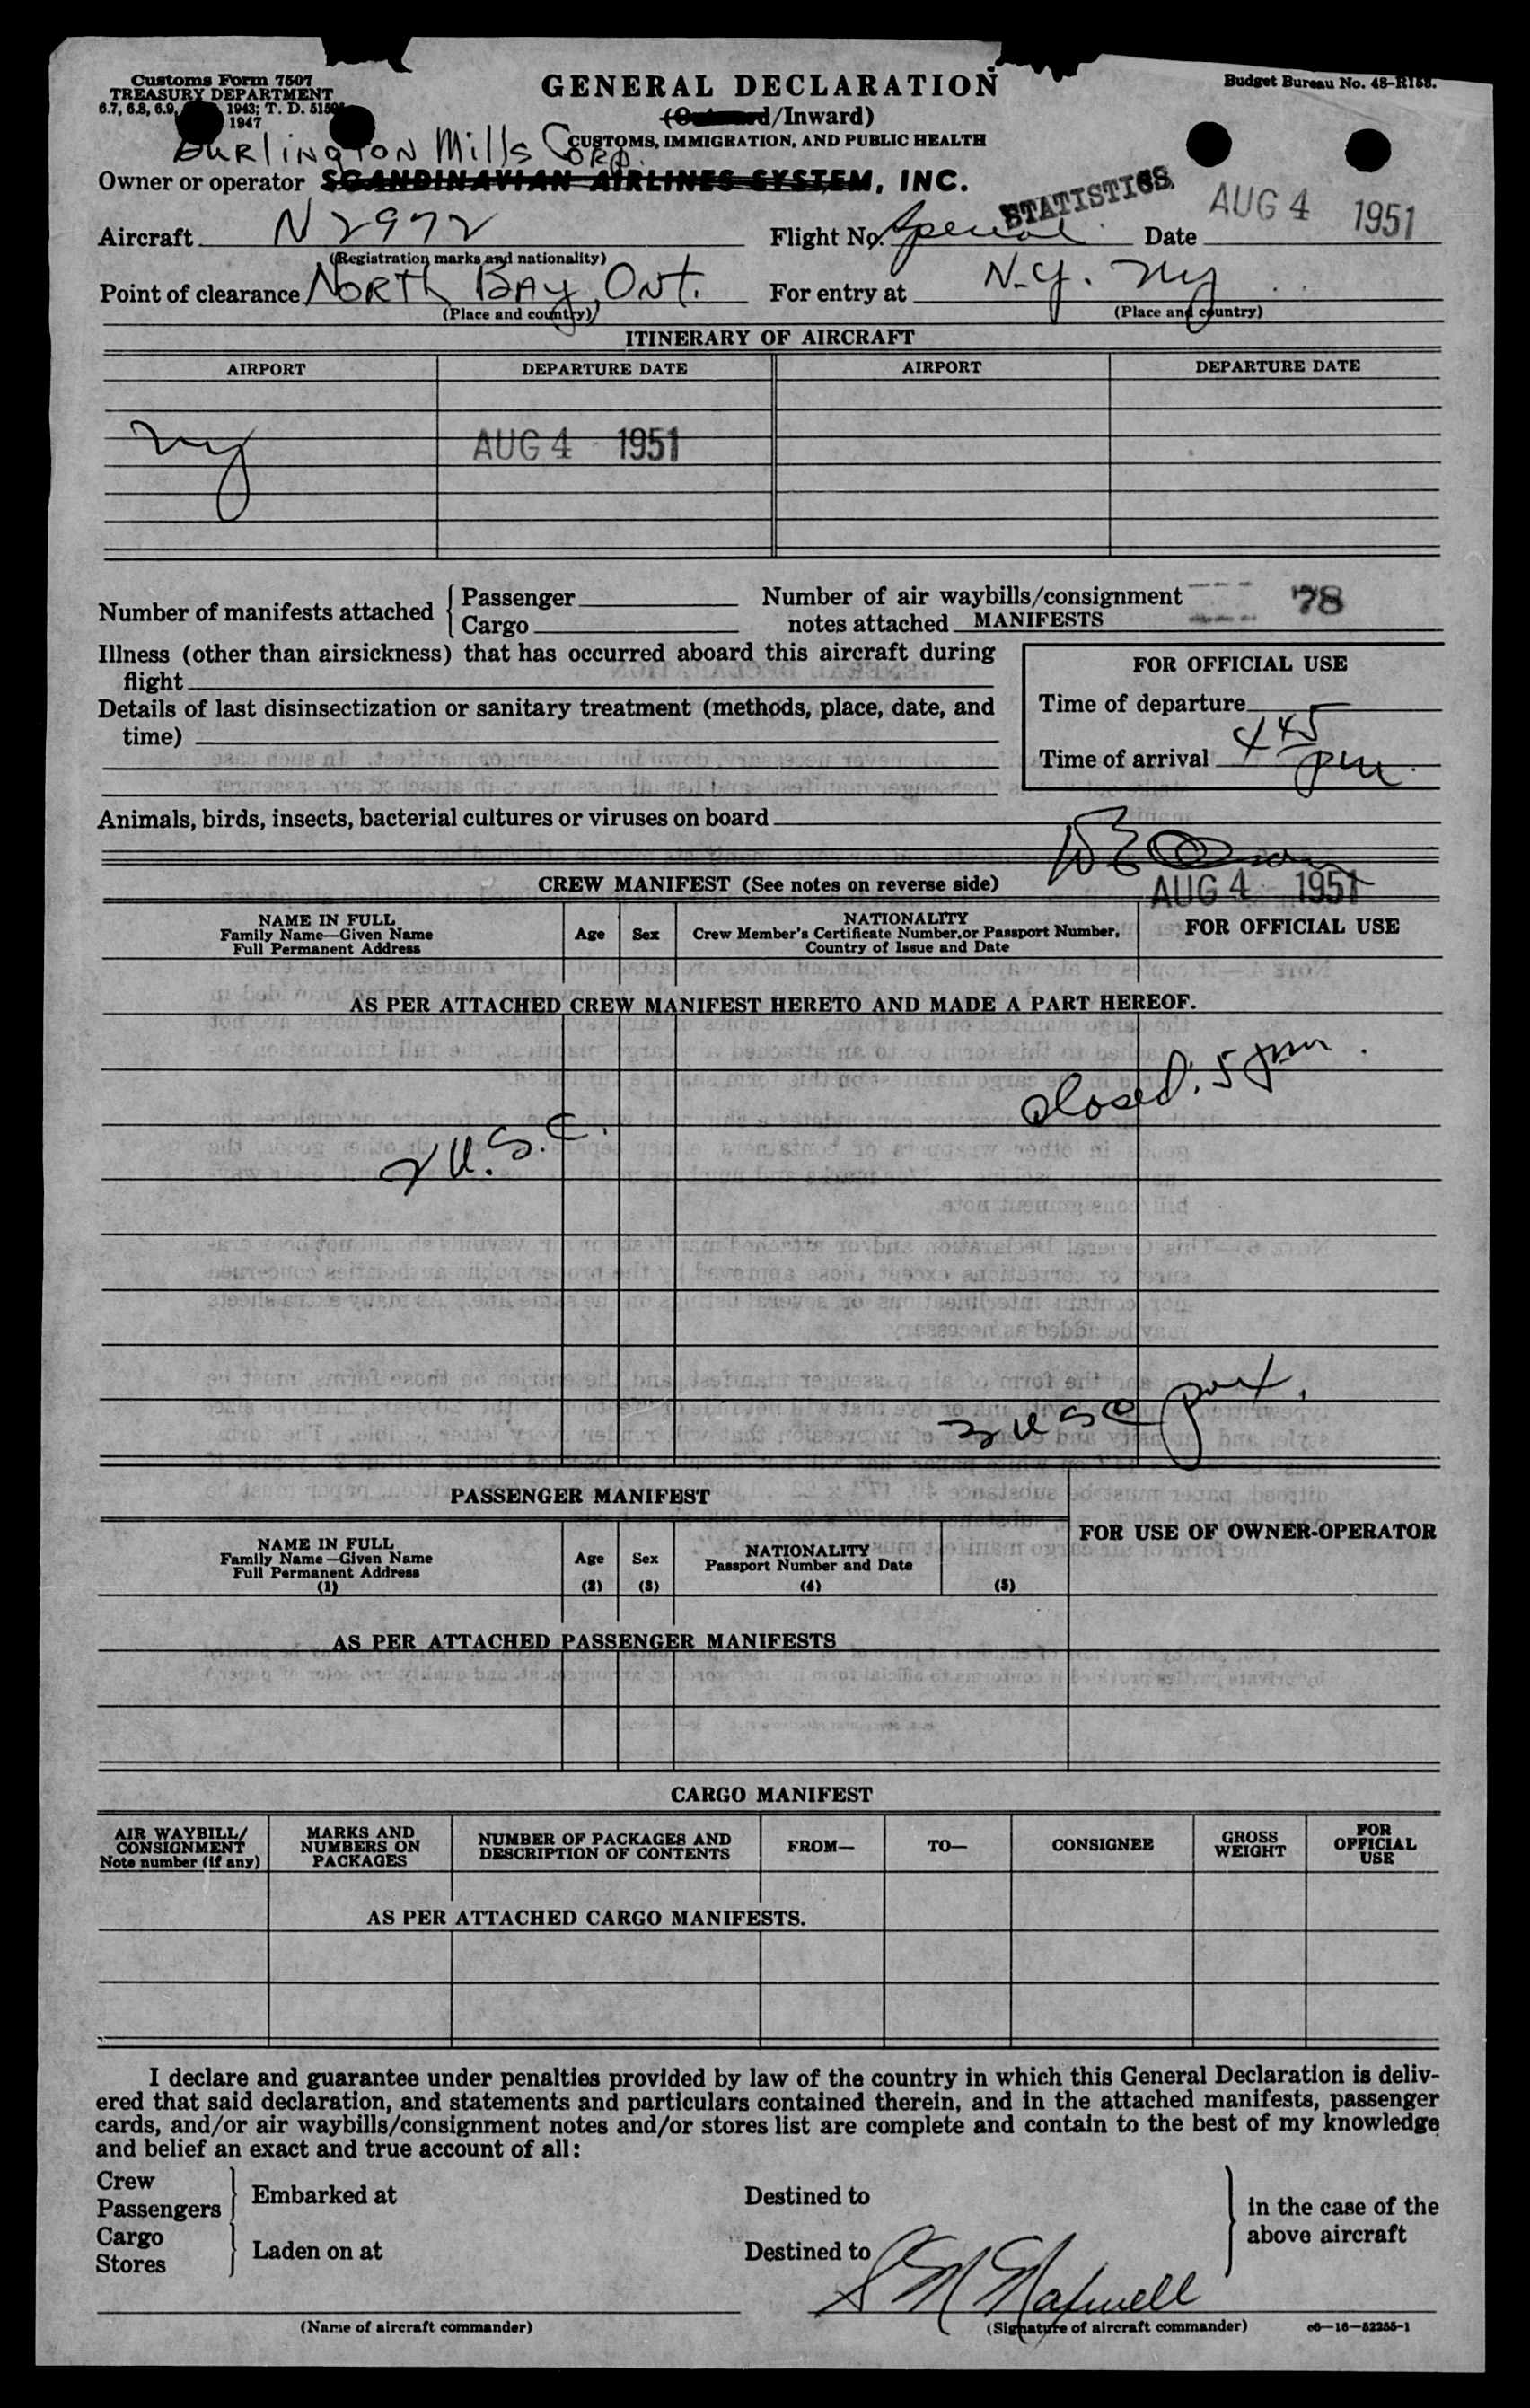 Customs Form 7507
TREASURY DEPARTMENT
6.7, 6.8, 6.9, 1943; T. D.
1947
GENERAL DECLARATION
/Inward)
CUSTOMS, IMMIGRATION, AND PUBLIC HEALTH
Budget Bureau No. 48-R153.
BURLINGTON Mills CORP.
Owner or operator SCANDINAVIAN AIRLINES SYSTEM, INC.
STATISTICS
AUG 4 1951
Aircraft N2972 Flight No. Special Date
(Registration marks and nationality)
Point of clearance NORTH BAY, Ont. For entry at N.Y. NY
(Place and country) (Place and country)
ITINERARY OF AIRCRAFT
AIRPORT DEPARTURE DATE AIRPORT DEPARTURE DATE
NY AUG 4 1951
Number of manifests attached { Passenger Number of air waybills/consignment 78
Cargo notes attached MANIFESTS
Illness (other than airsickness) that has occurred aboard this aircraft during
flight
Details of last disinsectization or sanitary treatment (methods, place, date, and
time)
FOR OFFICIAL USE
Time of departure
Time of arrival 4 45 pm.
Animals, birds, insects, bacterial cultures or viruses on board
CREW MANIFEST (See notes on reverse side)
AUG 4 1951
NAME IN FULL
Family Name—Given Name
Full Permanent Address
Age Sex
NATIONALITY
Crew Member's Certificate Number, or Passport Number,
Country of Issue and Date
FOR OFFICIAL USE
AS PER ATTACHED CREW MANIFEST HERETO AND MADE A PART HEREOF.
closed: 5 pm.
2 U.S.C.
3 USC
PASSENGER MANIFEST
NAME IN FULL
Family Name—Given Name
Full Permanent Address
(1)
Age
(2)
Sex
(3)
NATIONALITY
Passport Number and Date
(4) (5)
FOR USE OF OWNER-OPERATOR
AS PER ATTACHED PASSENGER MANIFESTS
CARGO MANIFEST
AIR WAYBILL/
CONSIGNMENT
Note number (if any)
MARKS AND
NUMBERS ON
PACKAGES
NUMBER OF PACKAGES AND
DESCRIPTION OF CONTENTS
FROM— TO— CONSIGNEE
GROSS
WEIGHT
FOR
OFFICIAL
USE
AS PER ATTACHED CARGO MANIFESTS.
I declare and guarantee under penalties provided by law of the country in which this General Declaration is deliv-
ered that said declaration, and statements and particulars contained therein, and in the attached manifests, passenger
cards, and/or air waybills/consignment notes and/or stores list are complete and contain to the best of my knowledge
and belief an exact and true account of all:
Crew
Passengers } Embarked at Destined to
Cargo
Stores } Laden on at Destined to
} in the case of the
above aircraft
(Name of aircraft commander) (Signature of aircraft commander) c6—16—52255-1